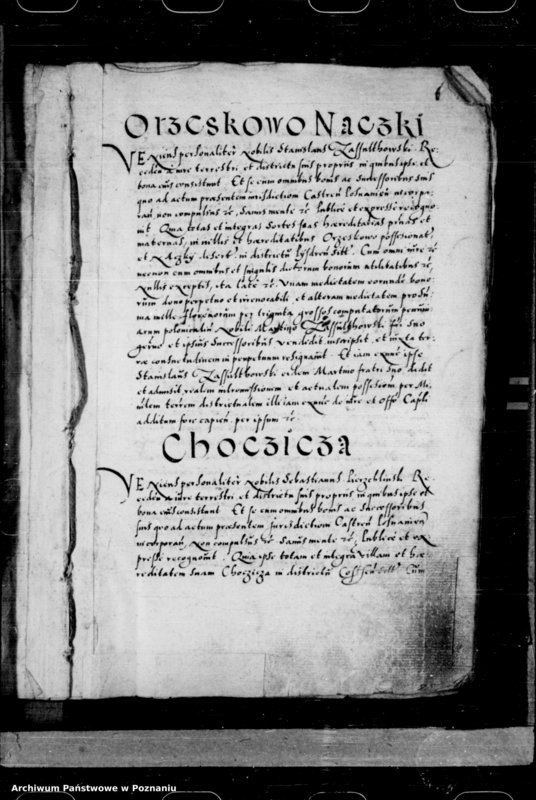 6
Orzeskowo Naczki
Veniens personaliter Nobilis Stanislaus Zassulthowski Re
cedens a iure terrestri et districtu suis propriis in quibus ipse et
bona eius consistunt Et se cum omnibus bonis ac Successoribus suis
quo ad actum præsentem iurisdictioni Castren Posnanien incorpo
ran non compulsus etc sanus mente etc publice et expresse recogno
uit Quia totas et integras Sortes suas hæreditarias et
maternas in villis et hæreditatibus Orzeskowo possessionat
et Naczky desert in districtu Cum omni iure etc
necnon cum omnibus et singulis dictorum bonorum utilitatibus etc
nullis exceptis ita late etc Unam medietatem eorunde bono
rum dono perpetno et irreuocabili et alteram medietatem pro
ma mille florenorum per triginta grossos computatorum
arum polonicaliu Nobili Martino Zassulthowski fri suo
germa et ipsius Successoribus vendidit inscripsit et iuxta ter
ræ consuetudinem in perpetuum resignauit Et iam ipse
Stanislaus Zassulthowski eidem Martino fratri suo dedit
et admisit realem intromissionem et actualem possessione per Mi
nistrlem terrem districtualem illi iam de iure et Offo Casli
additum fore capien per ipsum etc
Choczicza
Veniens personaliter Nobilis Sebastianus Re
cedens a iure terrestri et districtu suis propriis in quibus ipse et
bona eius consistunt Et se cum omnibus bonis ac Successoribus
suis quo ad actum præsentem iurisdictioni Castren Posnanien
incorporan, non compulsus etc Sanus mente etc, publice et ex
presse recognouit Quia ipse totam et integra villam et hæ
reditatem suam Choczicza in districtu Cum
Archiwum Państwowe w Poznaniu